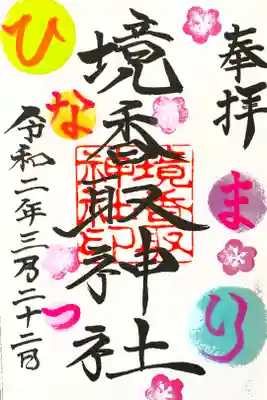 奉拝
境香取神社
令和二年三月二十二日
ひなまつり
境香取
神社印